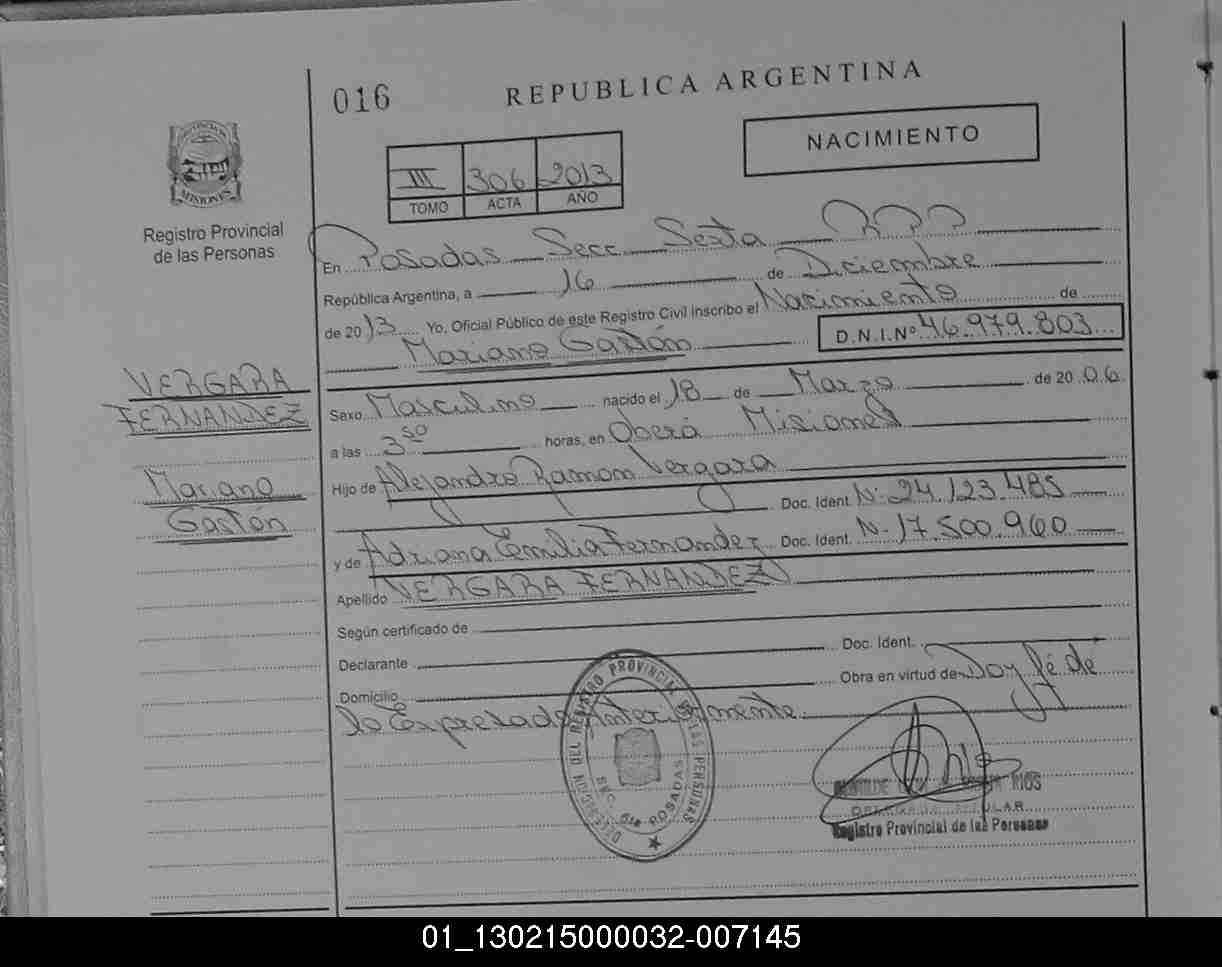 016
REPUBLICA ARGENTINA
NACIMIENTO
III 306 2013
TOMO ACTA AÑO
MISIONES
Registro Provincial
de las Personas
En Posadas Secc. Sexta
República Argentina, a 16 de Diciembre
de 2013 Yo, Oficial Público de este Registro Civil inscribo el Nacimiento de
Mariano Gastón D.N.I.Nº 46.979.803
VERGARA
FERNANDEZ
Mariano
Gastón
Sexo Masculino nacido el 18 de Marzo de 2006
a las 3:50 horas, en Oberá Misiones
Hijo de Alejandro Ramon Vergara
Doc. Ident. Nº 24.123.485
y de Adriana Emilia Fernandez Doc. Ident. Nº 17.500.960
Apellido VERGARA FERNANDEZ
Según certificado de
Declarante Doc. Ident.
Domicilio Obra en virtud de Doy fé de
lo Expresado Anteriormente.
DELEGACION DEL REGISTRO PROVINCIAL DE LAS PERSONAS
SECC. 6ta POSADAS
RIOS
Registro Provincial de las Personas
01_130215000032-007145